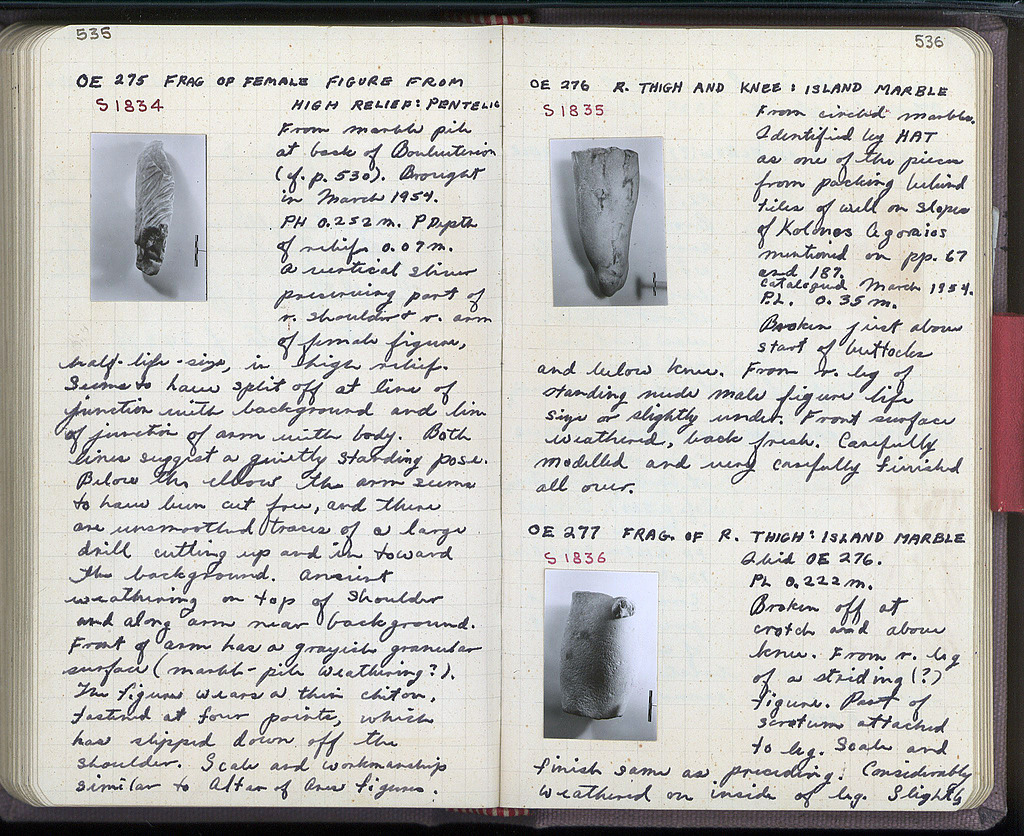 535
OE 275 FRAG OF FEMALE FIGURE FROM
S 1834
HIGH RELIEF: PENTELIC
From marble pile
at back of Bouleuterion
(cf. p. 530). Brought
in March 1954.
PH 0.252 m. P Depth
of relief 0.07 m.
A vertical sliver
preserving part of
r. shoulder & r. arm
of female figure,
half-life-size, in high relief.
Seems to have split off at line of
junction with background and line
of junction of arm with body. Both
lines suggest a quietly standing pose.
Below the elbow the arm seems
to have been cut free, and there
are unsmoothed traces of a large
drill cutting up and in toward
the background. Ancient
weathering on top of shoulder
and along arm near background.
Front of arm has a grayish granular
surface (marble-pile weathering?).
The figure wears a thin chiton,
fastened at four points, which
has slipped down off the
shoulder. Scale and workmanship
similar to Altar of Ares figures.
536
OE 276 R. THIGH AND KNEE: ISLAND MARBLE
S 1835
From circled marbles.
Identified by HAT
as one of the pieces
from packing behind
tiles of well on slopes
of Kolonos Agoraios
mentioned on pp. 67
and 187.
Catalogued March 1954.
P.L. 0.35 m.
Broken just above
start of buttocks
and below knee. From r. leg of
standing nude male figure life
size or slightly under. Front surface
weathered, back fresh. Carefully
modelled and very carefully finished
all over.
OE 277 FRAG. OF R. THIGH: ISLAND MARBLE
S 1836
Ibid OE 276.
PL 0.222 m.
Broken off at
crotch and above
knee. From r. leg
of a striding (?)
figure. Part of
scrotum attached
to leg. Scale and
finish same as preceding. Considerably
weathered on inside of leg. Slightly